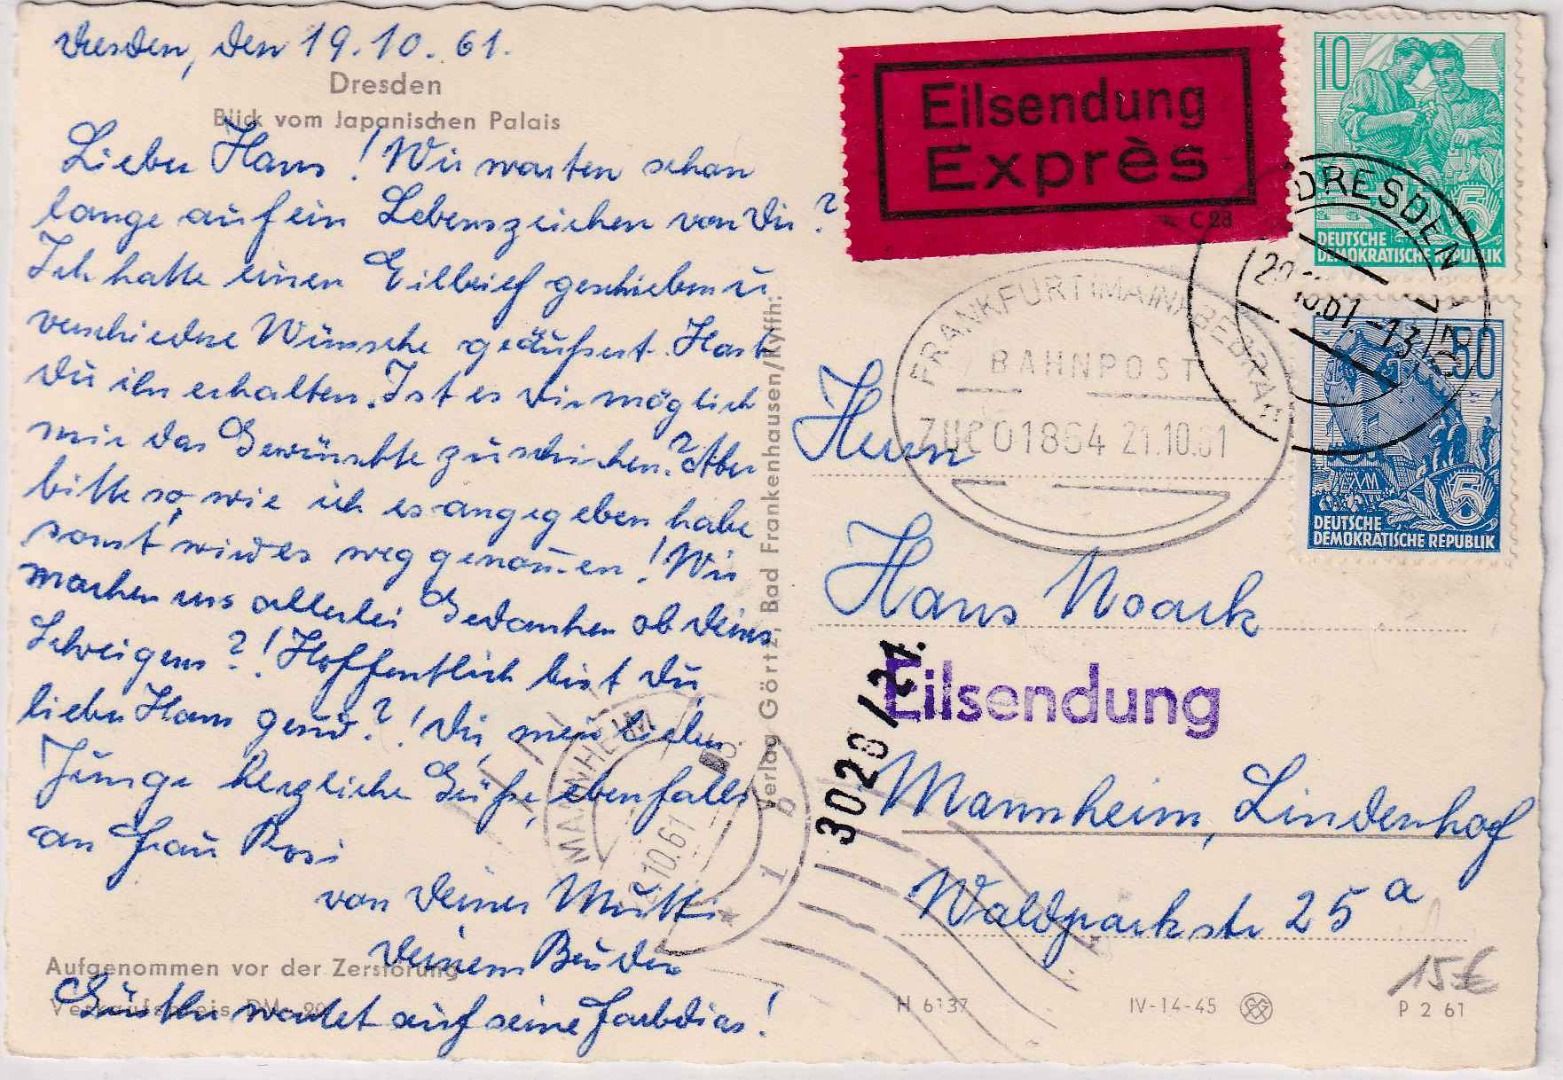 Dresden, den 19.10.61.
Dresden
Blick vom Japanischen Palais
Lieber Hans! Wir warten schon
lange auf ein Lebenszeichen von Dir?
Ich hatte einen Eilbrief geschrieben u
verschiedne Wünsche geäußert. Hast
Du ihn erhalten. Ist es Dir möglich
mir das Gewünschte zu schicken? Aber
bitte so, wie ich es angegeben habe
sonst wird es weg genommen! Wir
machen uns allerlei Gedanken ob Deines
Schweigens?! Hoffentlich bist Du,
lieber Hans gesund?! Dir, mein lieber
Junge herzliche Grüße, ebenfalls
an Frau Rosi
von Deiner Mutti
Deinem Bruder
Aufgenommen vor der Zerstörung
Verkaufspreis DM -,20
wartet auf seine Farbdias!
Verlag Görtz, Bad Frankenhausen/Kyffh:
Eilsendung
Exprès
C 28
10
DEUTSCHE
DEMOKRATISCHE REPUBLIK
5
DRESDEN
20.10.61.-13
50
5
DEUTSCHE
DEMOKRATISCHE REPUBLIK
FRANKFURT (MAIN)-BEBRA
BAHNPOST
ZUG 01864 21.10.61
Herrn
Hans Noack
Eilsendung
3028/21.
Mannheim, Lindenhof
Waldparkstr 25 a
MANNHEIM
10.61
15€
H 6137
IV-14-45
P 2 61